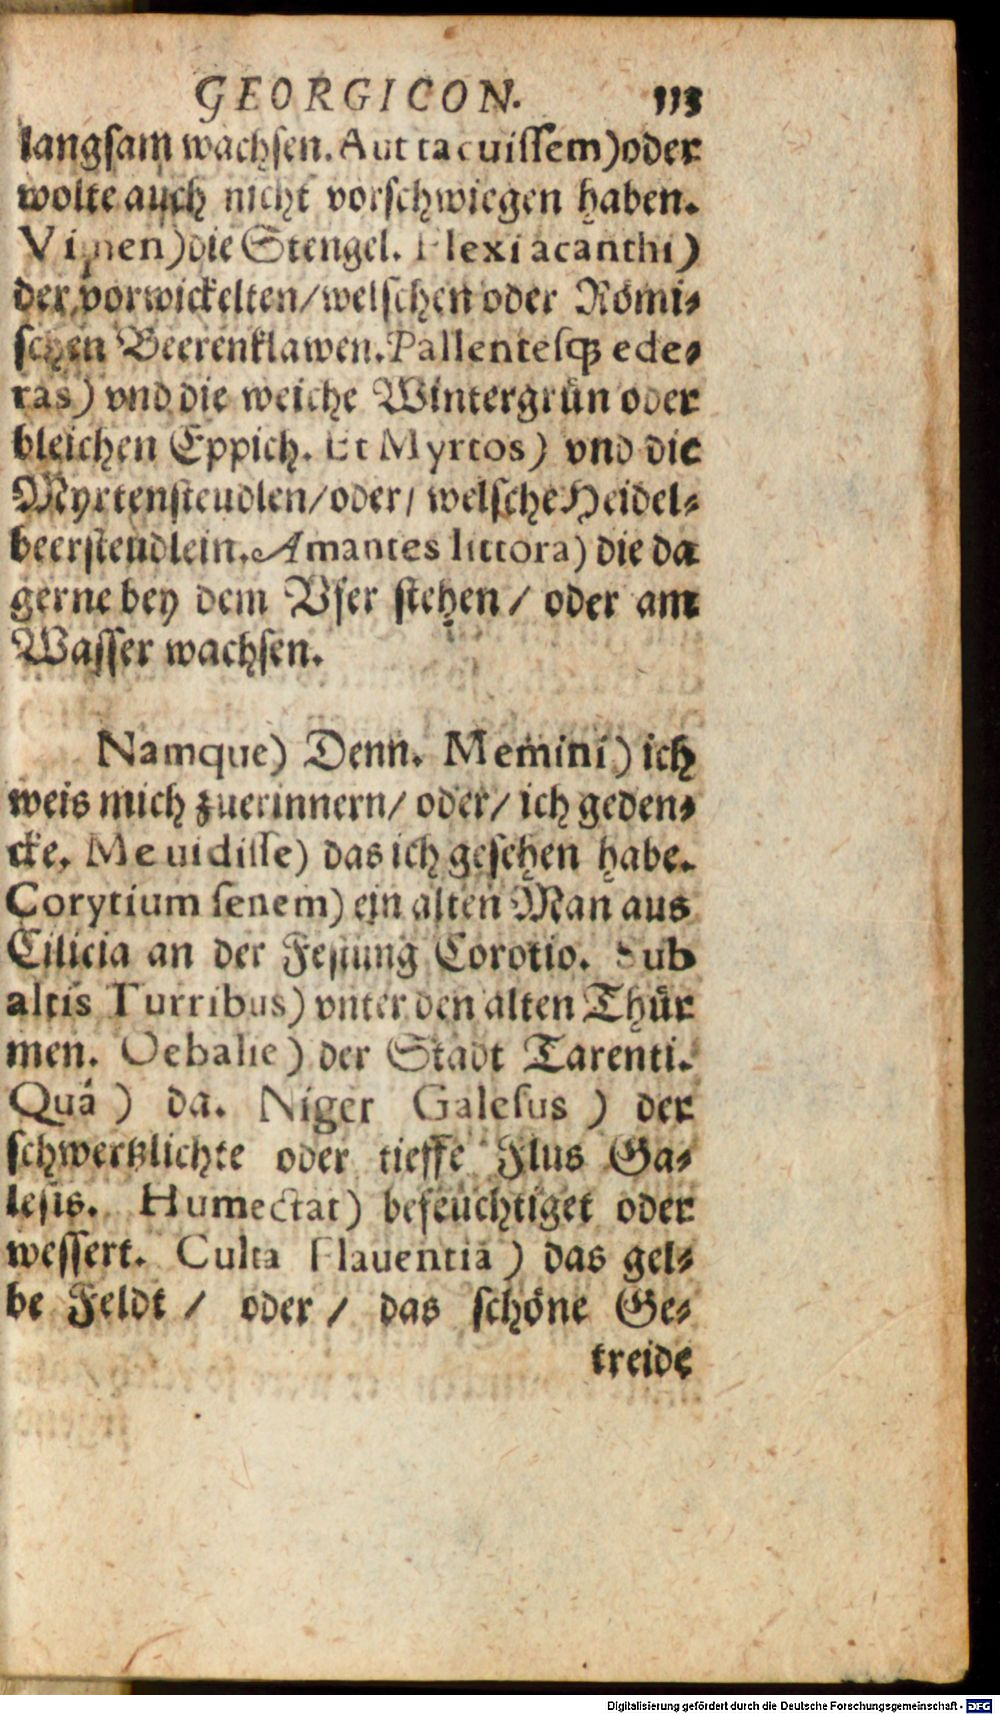 GEORGICON. 113
langſam wachſen. Aut tacuiſſem) oder
wolte auch nicht vorſchwiegen haben.
Vimen) die Stengel. Flexi acanthi)
der vorwickelten / welſchen oder Römi-
ſchen Beerenklawen. Pallentesqꝫ ede-
ras) vnd die weiche Wintergrün oder
bleichen Eppich. Et Myrtos) vnd die
Myrtenſteudlen / oder / welſche Heidel-
beerſteudlein. Amantes littora) die da
gerne bey dem Vfer ſtehen / oder am
Waſſer wachſen.
Namque) Denn. Memini) ich
weis mich zuerinnern / oder / ich geden-
cke. Me uidiſſe) das ich geſehen habe.
Corytium ſenem) ein alten Man aus
Cilicia an der Feſtung Corotio. Sub
altis Turribus) vnter den alten Thür
men. Oebalie) der Stadt Tarenti.
Quá) da. Niger Galeſus) der
ſchwertzlichte oder tieffe Flus Ga-
leſis. Humectat) befeuchtiget oder
weſſert. Culta Flauentia) das gel-
be Feldt / oder / das ſchöne Ge-
treide
Digitalisierung gefördert durch die Deutsche Forschungsgemeinschaft - DFG